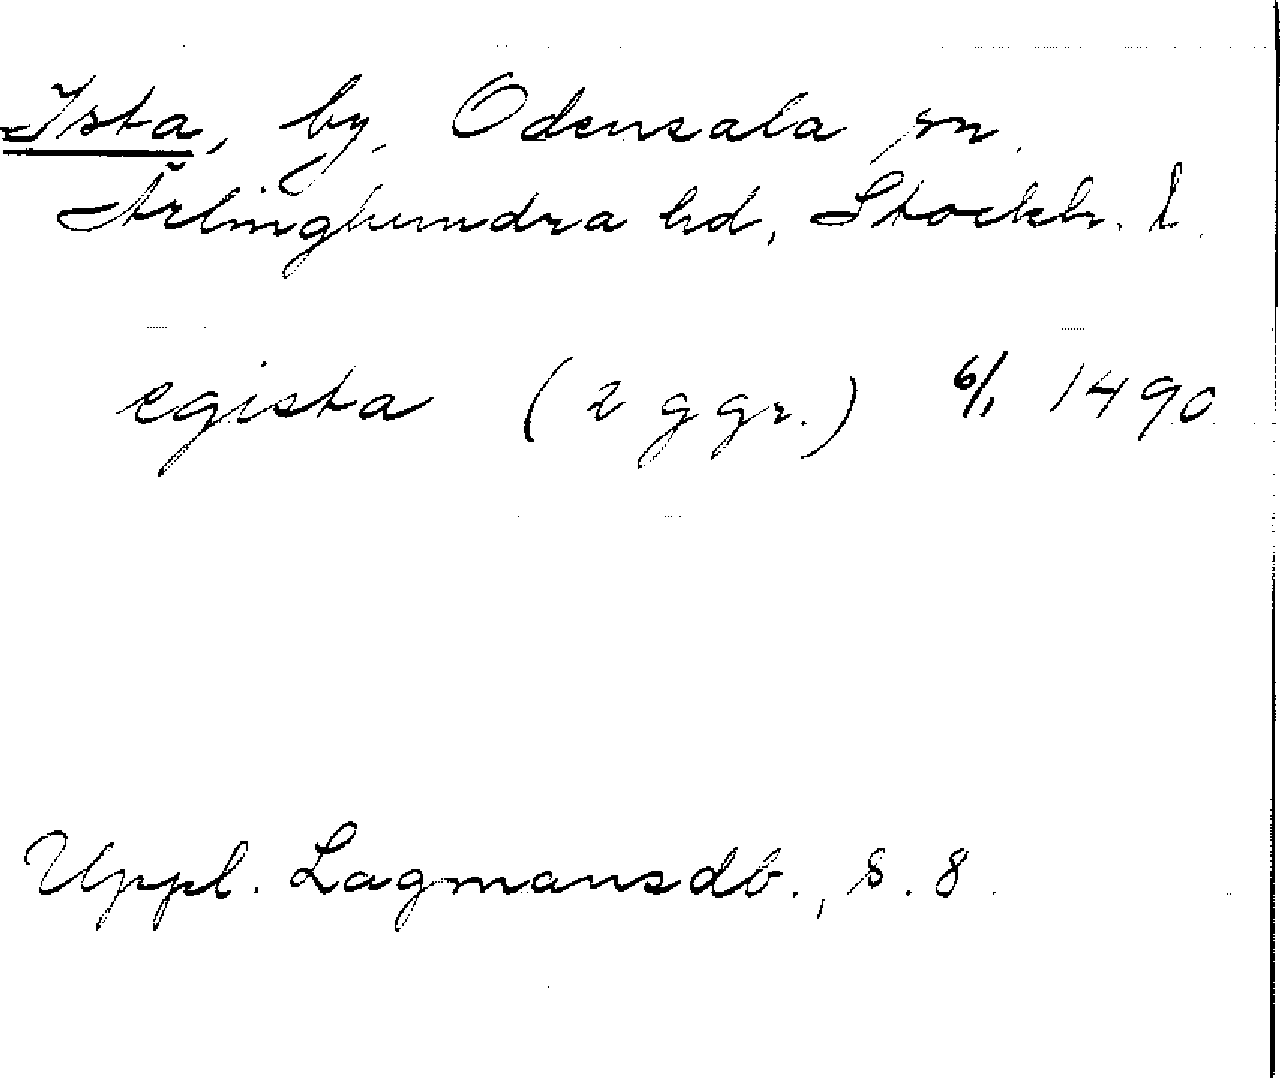 Ista, by, Odensala sn.
Ärlinghundra hd, Stockh. l.
egista (2 ggr.) 6/1 1490
Uppl. Lagmansdb., s. 8.